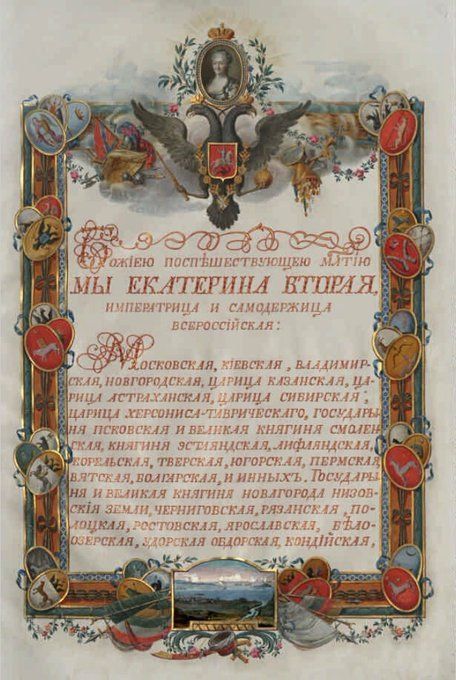 Божіею поспѣшествующею мл҃тію
МЫ ЕКАТЕРИНА ВТОРАЯ,
ИМПЕРАТРИЦА И САМОДЕРЖИЦА
ВСЕРОССІЙСКАЯ:
МОСКОВСКАЯ, КІЕВСКАЯ, ВЛАДИМИР-
СКАЯ, НОВГОРОДСКАЯ, ЦАРИЦА КАЗАНСКАЯ, ЦА-
РИЦА АСТРАХАНСКАЯ, ЦАРИЦА СИБИРСКАЯ,
ЦАРИЦА ХЕРСОНИСА-ТАВРИЧЕСКАГО, ГОСУДАРЫ-
НЯ ПСКОВСКАЯ И ВЕЛИКАЯ КНЯГИНЯ СМОЛЕН-
СКАЯ, КНЯГИНЯ ЭСТЛЯНДСКАЯ, ЛИФЛЯНДСКАЯ,
КОРЕЛЬСКАЯ, ТВЕРСКАЯ, ЮГОРСКАЯ, ПЕРМСКАЯ,
ВЯТСКАЯ, БОЛГАРСКАЯ, И ИННЫХЪ. ГОСУДАРЫ-
НЯ И ВЕЛИКАЯ КНЯГИНЯ НОВАГОРОДА НИЗОВ-
СКІЯ ЗЕМЛИ, ЧЕРНИГОВСКАЯ, РЯЗАНСКАЯ, ПО-
ЛОЦКАЯ, РОСТОВСКАЯ, ЯРОСЛАВСКАЯ, БѢЛО-
ОЗЕРСКАЯ, УДОРСКАЯ ОБДОРСКАЯ, КОНДІЙСКАЯ,